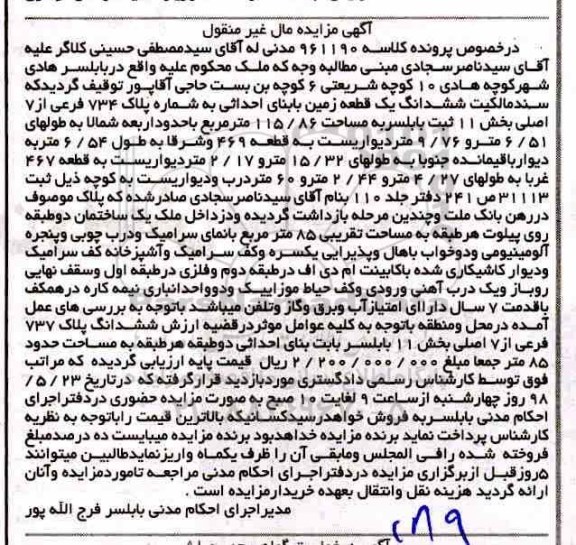 آگهی مزایده مال غیر منقول
درخصوص پرونده کلاسه ۹۶۱۱۹۰ مدنی له آقای سیدمصطفی حسینی کلاگر علیه
آقای سیدناصرسجادی مبنی مطالبه وجه که ملک محکوم علیه واقع دربابلسر هادی
شهرکوچه هادی ۱۰ کوچه شریعتی ۶ کوچه بن بست حاجی آقاپور توقیف گردیدکه
سندمالکیت ششدانگ یک قطعه زمین بابنای احداثی به شماره پلاک ۷۳۴ فرعی از۷
اصلی بخش ۱۱ ثبت بابلسربه مساحت ۸۶ / ۱۱۵ مترمربع باحدوداربعه شمالا به طولهای
۵۱ / ۶ متـرو ۷۶ / ۹ متردیواریست به قطعه ۴۶۹ وشرقا به طول ۵۴ / ۶ متربه
دیوارباقیمانده جنوبا به طولهای ۳۲ / ۱۵ مترو ۱۷ / ۲ متردیواریست به قطعه ۴۶۷
غربا به طولهای ۲۷ / ۴ مترو ۴۴ / ۲ مترو ۶۰ متردرب ودیواریست به کوچه ذیل ثبت
۳۱۱۱۳ ص ۲۴۱ دفتر جلد ۱۱۰ بنام آقای سیدناصرسجادی صادرشده که پلاک موصوف
دررهن بانک ملت وچندین مرحله بازداشت گردیده ودرداخل ملک یک ساختمان دوطبقه
روی پیلوت هرطبقه به مساحت تقریبی ۸۵ متر مربع بانمای سرامیک ودرب چوبی وپنجره
آلومینیومی ودوخواب باهال وپذیرایی یکسره وکف سرامیک وآشپزخانه کف سرامیک
ودیوار کاشیکاری شده باکابینت ام دی اف درطبقه دوم وفلزی درطبقه اول وسقف نهایی
روباز ویک درب آهنی ورودی وکف حیاط موزاییک ودوواحدانباری نیمه کاره درهمکف
باقدمت ۷ سال دارای امتیازآب وبرق وگاز وتلفن میباشد باتوجه به بررسی های عمل
آمده درمحل ومنطقه باتوجه به کلیه عوامل موثردرقضیه ارزش ششدانگ پلاک ۷۳۷
فرعی از۷ اصلی بخش ۱۱ بابلسر بابت بنای احداثی دوطبقه هرطبقه به مساحت حدود
۸۵ متر جمعا مبلغ ۰۰۰ / ۰۰۰ / ۲۰۰ / ۲ ریال قیمت پایه ارزیابی گردیده که مراتب
فوق توسط کارشناس رسمی دادگستری موردبازدید قرارگرفته که درتاریخ ۲۳ / ۵ /
۹۸ روز چهارشنبه ازساعت ۹ لغایت ۱۰ صبح به صورت مزایده حضوری دردفتراجرای
احکام مدنی بابلسربه فروش خواهدرسیدکسانیکه بالاترین قیمت راباتوجه به نظریه
کارشناس پرداخت نماید برنده مزایده خداهدبود برنده مزایده میبایست ده درصدمبلغ
فروخته شده رافی المجلس ومابقی آن را ظرف یکماه واریزنمایدطالبین میتوانند
۵روزقبل ازبرگزاری مزایده دردفتراجرای احکام مدنی مراجعه تاموردمزایده وآنان
ارائه گردید هزینه نقل وانتقال بعهده خریدارمزایده است .
مدیراجرای احکام مدنی بابلسر فرج الله پور